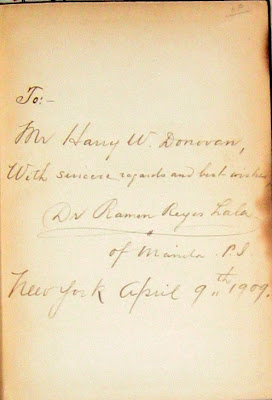 To:-
Mr Harry W. Donovan,
With sincere regards and best wishes
Dr Ramon Reyes Lala
of Manila. P.I.
New York April 9th 1909.